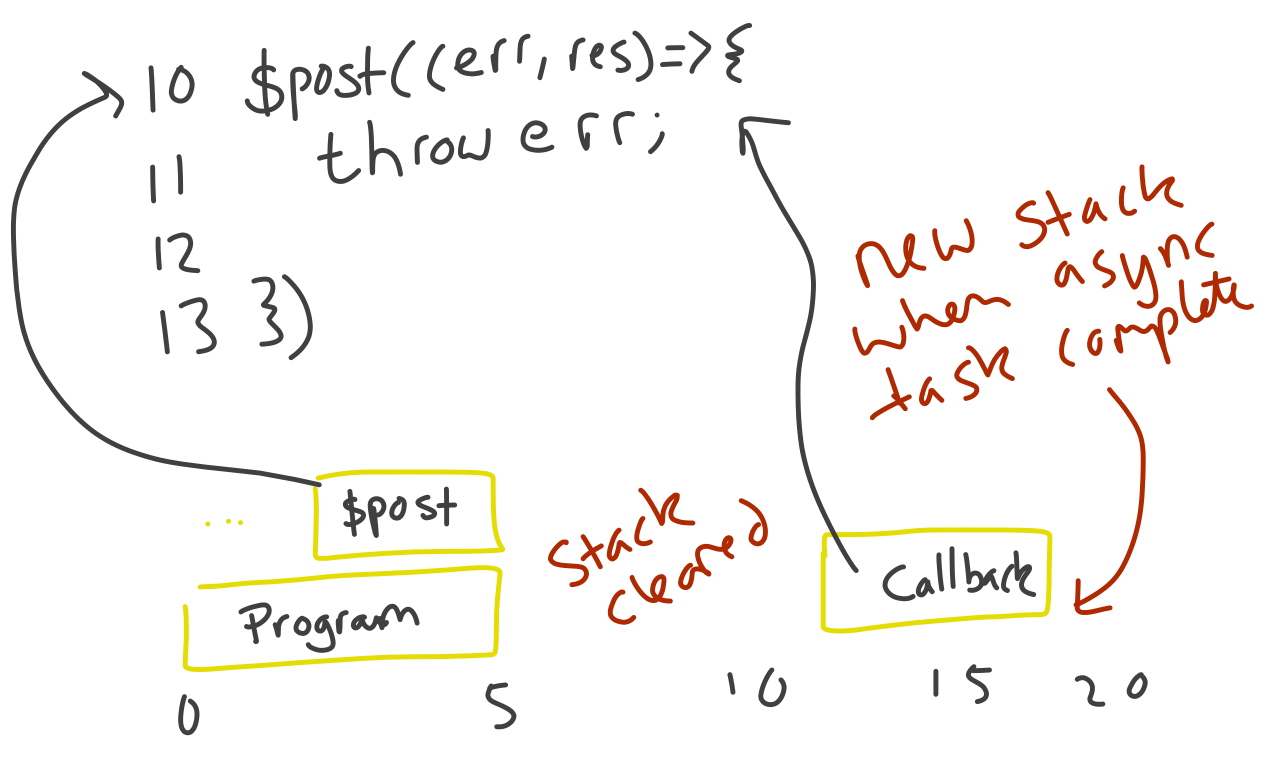 10 $post((err, res)=>{
11 throw err;
12
13 })
new stack
when async
task complete
... $post
stack
cleared
Program
Callback
0 5 10 15 20